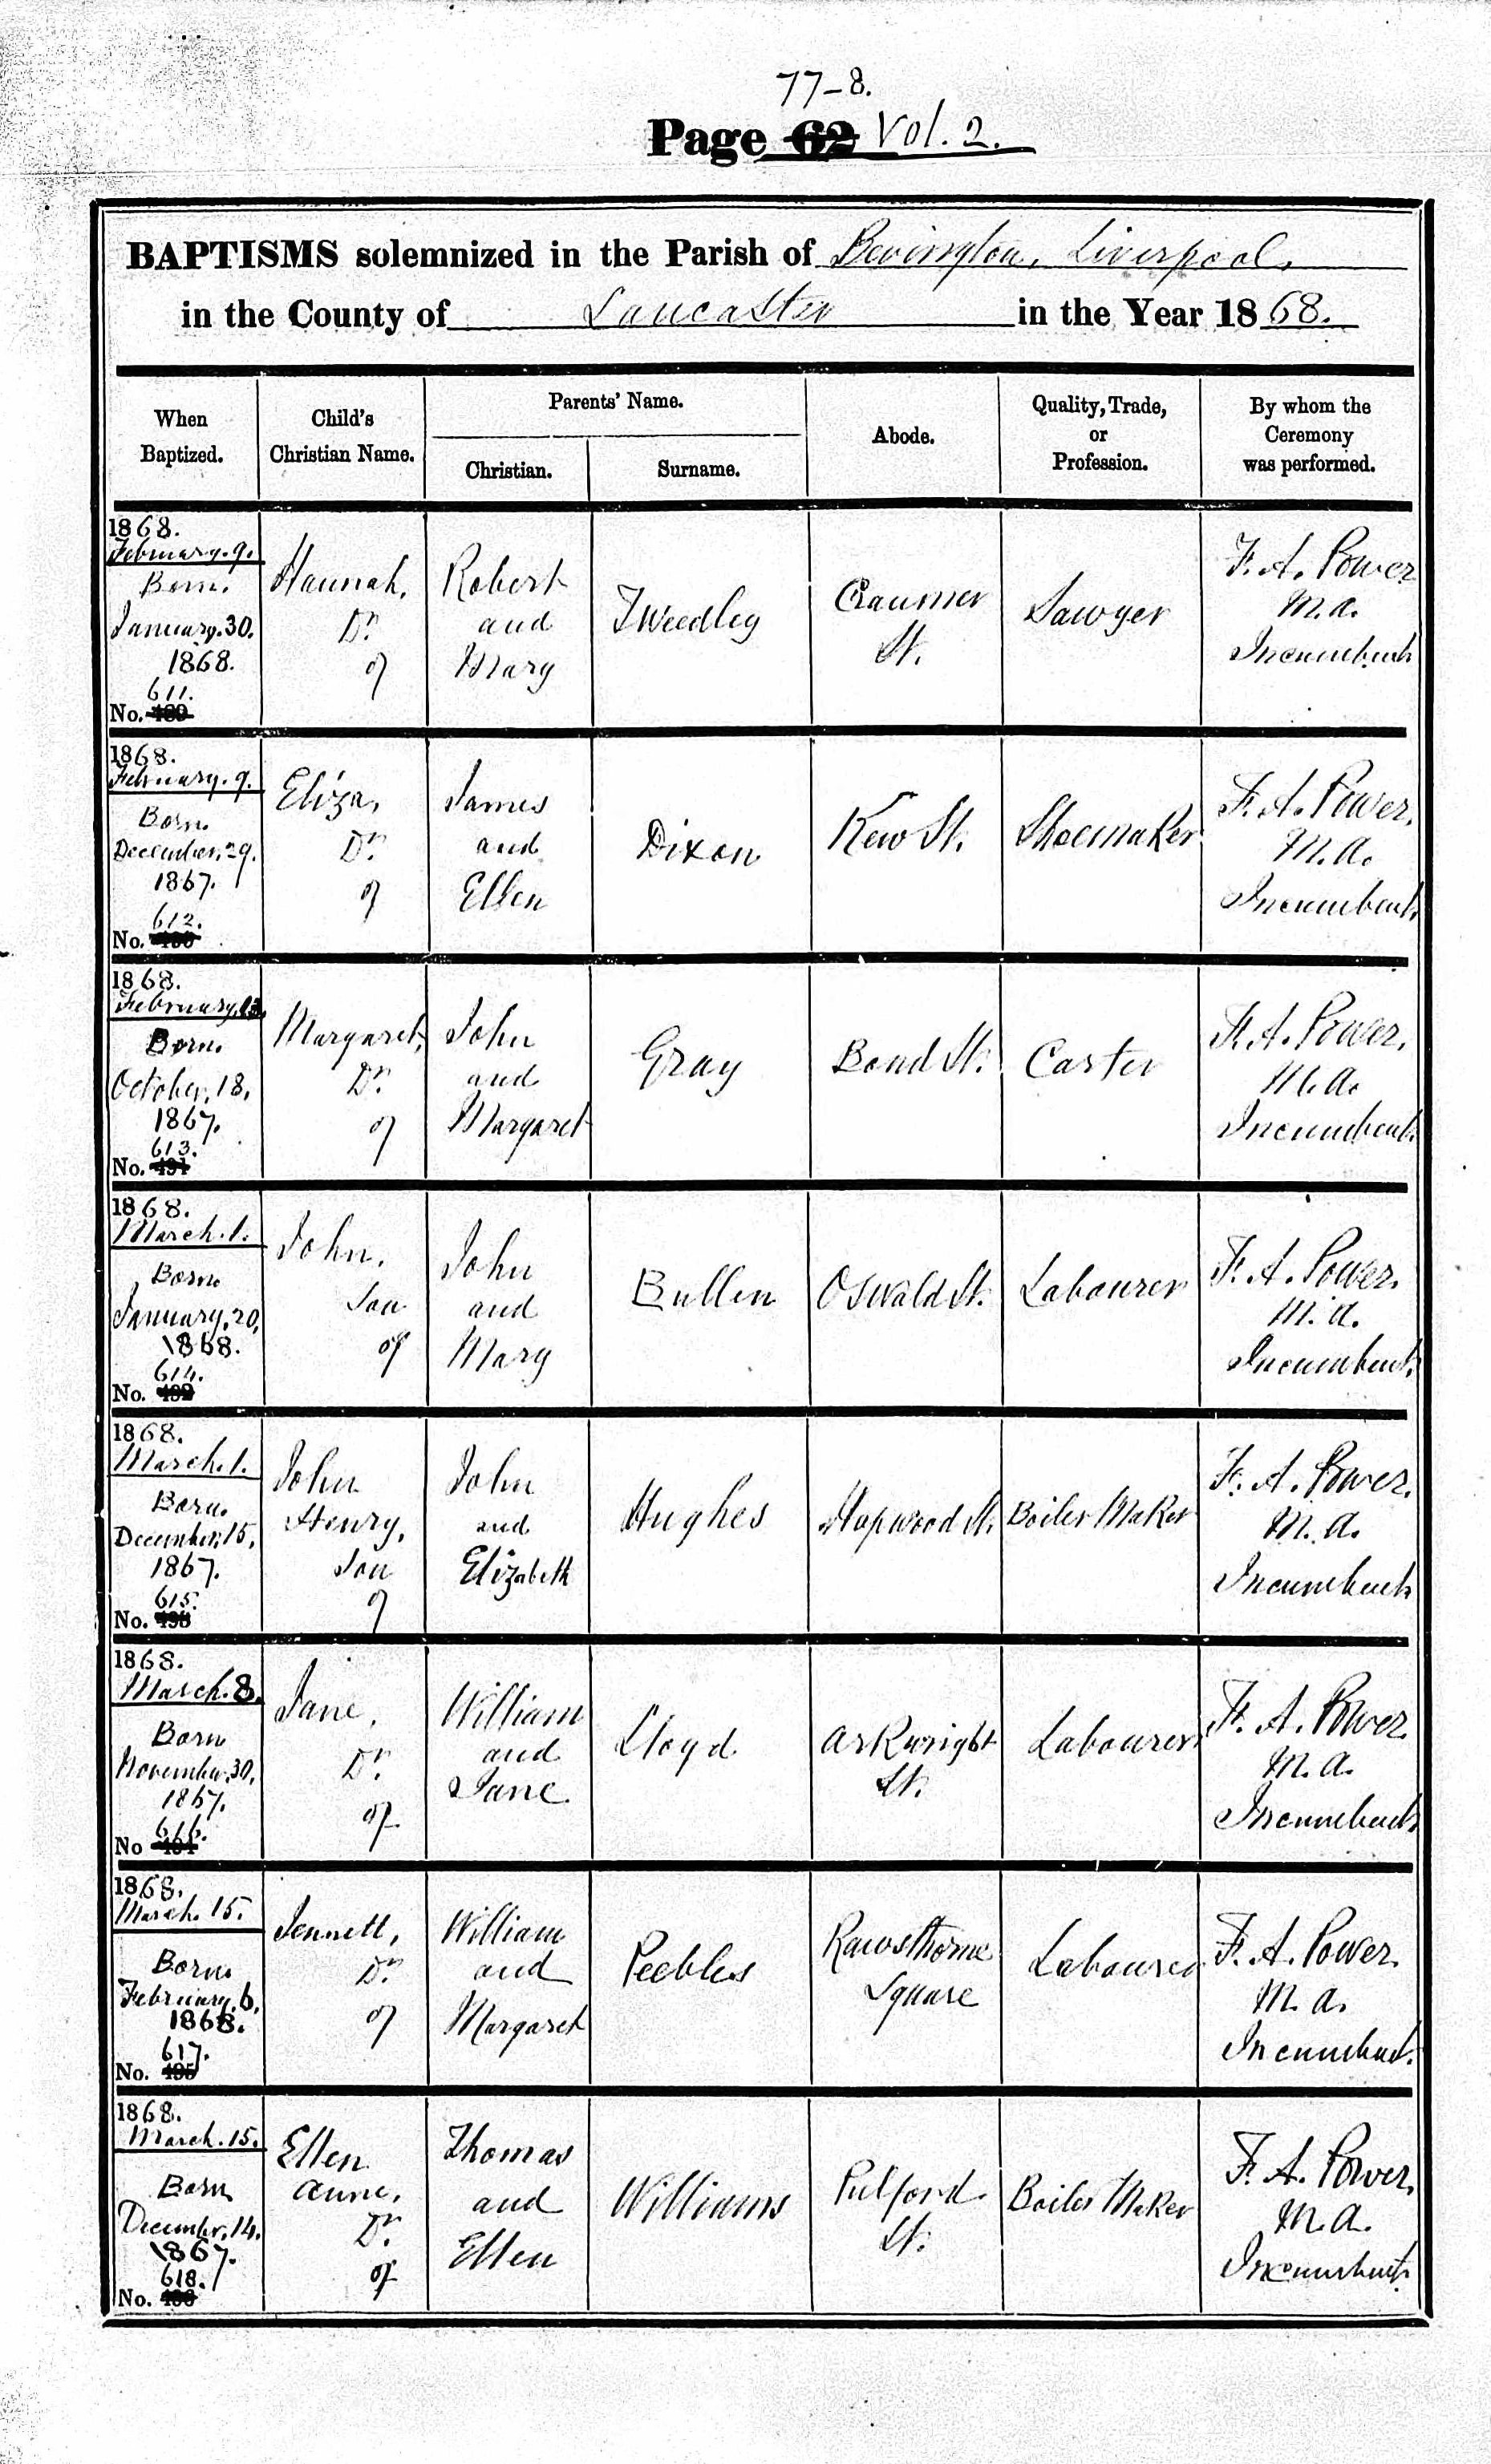 77-8.
Page 62 Vol. 2.
BAPTISMS solemnized in the Parish of Bevington, Liverpool,
in the County of Lancaster in the Year 1868.
When Baptized.
Child's Christian Name.
Parents' Name.
Christian.
Surname.
Abode.
Quality, Trade, or Profession.
By whom the Ceremony was performed.
1868.
February. 9.
Born.
January. 30.
1868.
611.
No. 489
Hannah,
Dr.
of
Robert
and
Mary
Tweedley
Cranmer
St.
Sawyer
F. A. Power
M.A.
Incumbent
1868.
February. 9.
Born.
December, 29.
1867.
612.
No. 490
Eliza,
Dr.
of
James
and
Ellen
Dixon
Kew St.
Shoemaker
F. A. Power,
M.A.
Incumbent.
1868.
February,
Born.
October, 18,
1867.
613.
No. 491
Margaret,
Dr.
of
John
and
Margaret
Gray
Bond St.
Carter
F. A. Power,
M.A.
Incumbent.
1868.
March. 1.
Born
January, 20,
1868.
614.
No. 492
John,
Son
of
John
and
Mary
Bullen
Oswald St.
Labourer
F. A. Power.
M.A.
Incumbent.
1868.
March. 1.
Born.
December, 15,
1867.
615.
No. 493
John
Henry,
Son
of
John
and
Elizabeth
Hughes
Hopwood St.
Boiler Maker
F. A. Power.
M.A.
Incumbent
1868.
March. 8.
Born
November, 30,
1867.
616.
No 494
Jane,
Dr.
of
William
and
Jane
Lloyd
Arkwright
St.
Labourer
F. A. Power
M.A.
Incumbent
1868.
March. 15.
Born.
February, 6,
1868.
617.
No. 495
Jennett,
Dr.
of
William
and
Margaret
Peebles
Rawsthorne
Square
Labourer
F. A. Power.
M.A.
Incumbent.
1868.
March. 15.
Born
December, 14,
1867.
618.
No. 496
Ellen
Anne,
Dr.
of
Thomas
and
Ellen
Williams
Pulford
St.
Boiler Maker
F. A. Power,
M.A.
Incumbent.